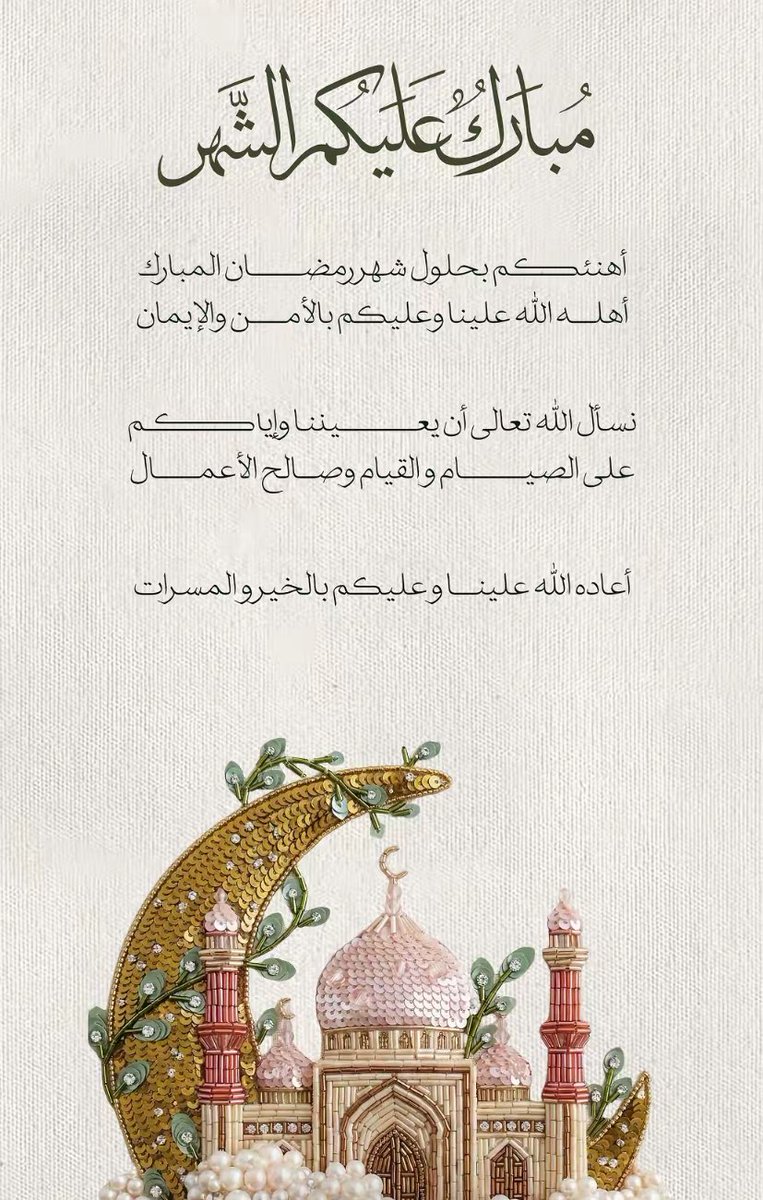 مُبَارَكٌ عَلَيكُم الشَّهر
أهنئكم بحلول شهر رمضان المبارك
أهله الله علينا وعليكم بالأمن والإيمان
نسأل الله تعالى أن يعيننا وإياكم
على الصيام والقيام وصالح الأعمال
أعاده الله علينا وعليكم بالخير والمسرات